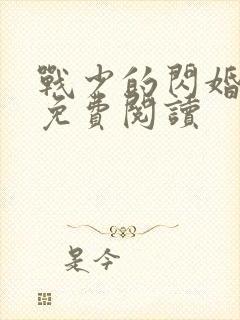 戰少的閃婚
免費閱讀
是今